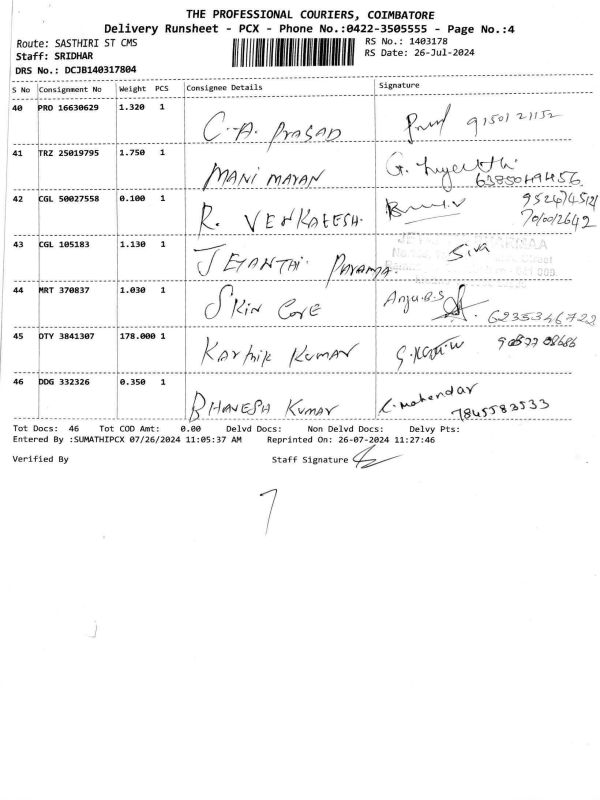 THE PROFESSIONAL COURIERS, COIMBATORE
Delivery Runsheet - PCX - Phone No.:0422-3505555 - Page No.:4
Route: SASTHIRI ST CMS
RS No.: 1403178
Staff: SRIDHAR
RS Date: 26-Jul-2024
DRS No.: DCJB140317804
S No Consignment No Weight PCS Consignee Details Signature
40 PRO 16630629 1.320 1
C. A. PRASAD 9150121152
41 TRZ 25019795 1.750 1
MANI MARAN G.
42 CGL 50027558 0.100 1
R. VENKATESH.
43 CGL 105183 1.130 1
JEYANTHI Siva
44 MRT 370837 1.030 1
SKIN CARE Anju.B.S 6235346722
45 DTY 3841307 178.000 1
Karthik Kumar
46 DDG 332326 0.350 1
BHAVESH KUMAR K. Mahendar
7845583533
Tot Docs: 46 Tot COD Amt: 0.00 Delvd Docs: Non Delvd Docs: Delvy Pts:
Entered By :SUMATHIPCX 07/26/2024 11:05:37 AM Reprinted On: 26-07-2024 11:27:46
Verified By Staff Signature
7